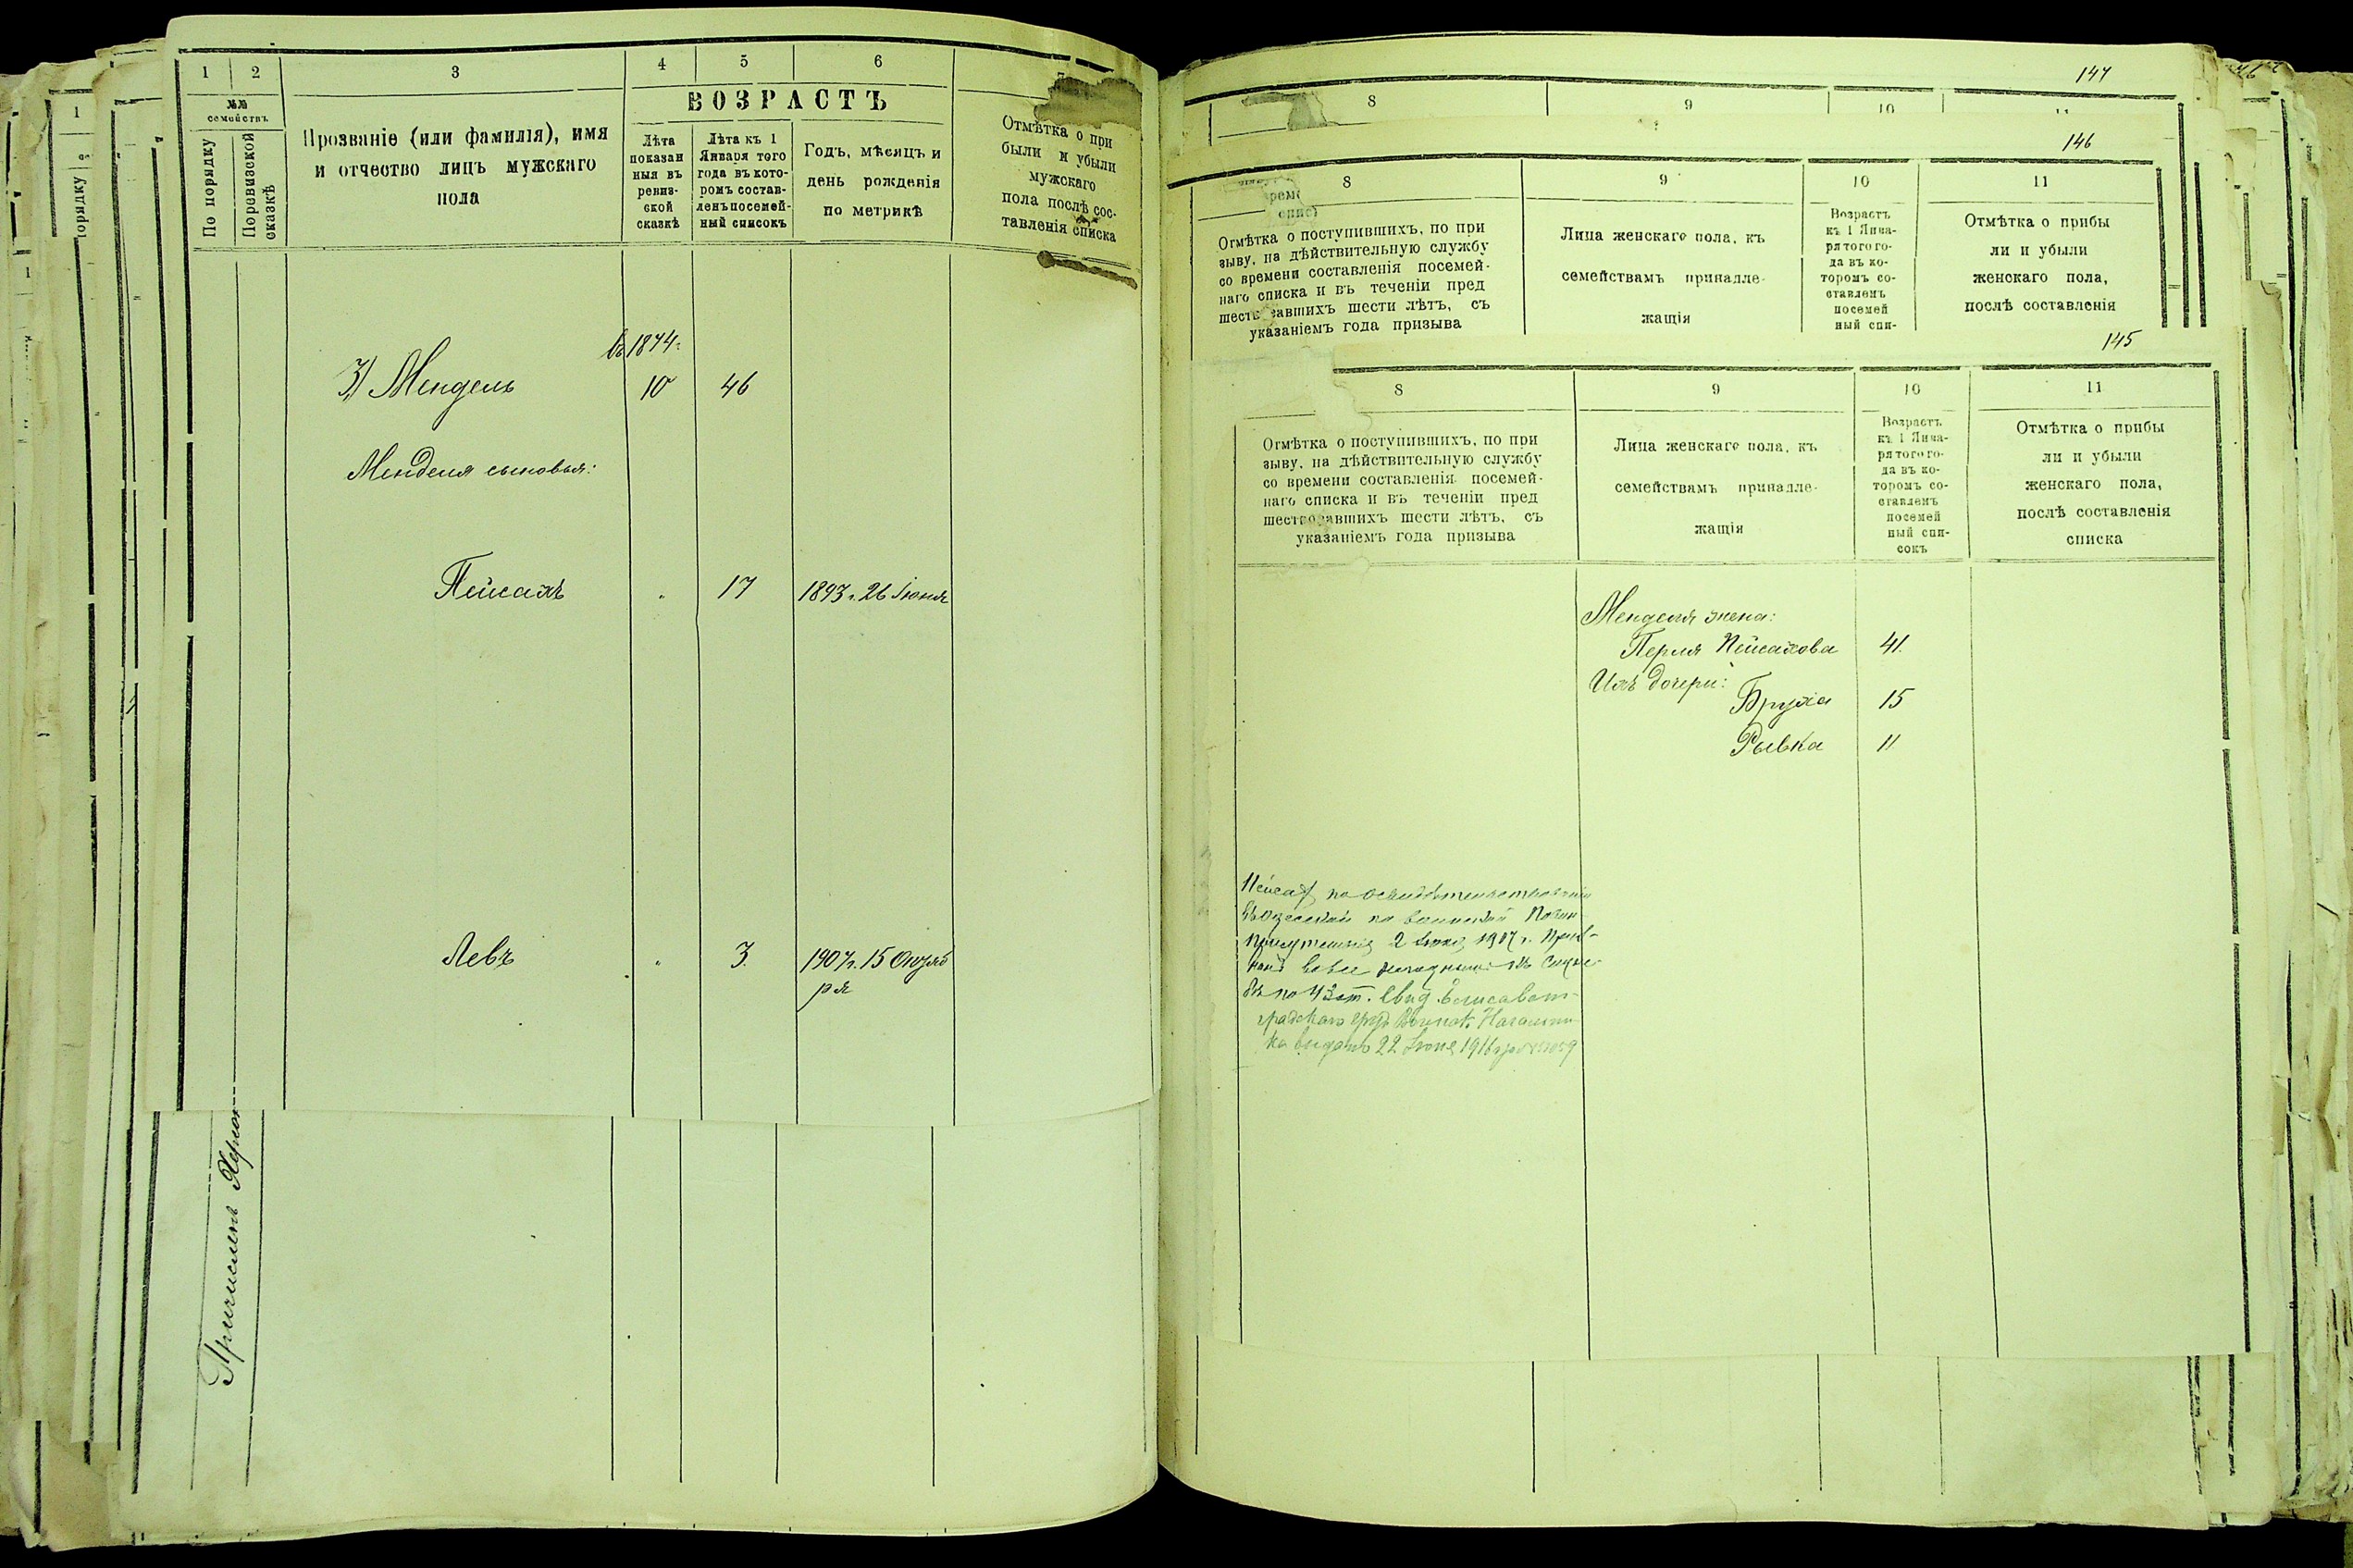 1 2 3 4 5 6 7
№№ семействъ
По порядку
По ревизской сказкѣ
Прозваніе (или фамилія), имя
и отчество лицъ мужскаго
пола
ВОЗРАСТЪ
Лѣта
показан
ныя въ
ревиз-
ской
сказкѣ
Лѣта къ 1
Января того
года въ кото-
ромъ состав-
ленъ посемей-
ный списокъ
Годъ, мѣсяцъ и
день рожденія
по метрикѣ
Отмѣтка о при
были и убыли
мужскаго
пола послѣ сос-
тавленія списка
въ 1874.
3) Мендель 10 46
Менделя сыновья:
Пейсахъ " 17 1893 г. 26 Іюня
Левъ " 3 1907 г. 15 Октяб
ря
Причисленъ
147
8 9 10
146
8 9 10 11
Отмѣтка о поступившихъ, по при
зыву, на дѣйствительную службу
со времени составленія посемей-
наго списка и въ теченіи пред
шествовавшихъ шести лѣтъ, съ
указаніемъ года призыва
Лица женскаго пола, къ
семействамъ принадле-
жащія
Возрастъ
къ 1 Янва-
ря того го-
да въ ко-
торомъ со-
ставленъ
посемей
ный спи-
Отмѣтка о прибы
ли и убыли
женскаго пола,
послѣ составленія
145
8 9 10 11
Отмѣтка о поступившихъ, по при
зыву, на дѣйствительную службу
со времени составленія посемей-
наго списка и въ теченіи пред
шествовавшихъ шести лѣтъ, съ
указаніемъ года призыва
Лица женскаго пола, къ
семействамъ принадле-
жащія
Возрастъ
къ 1 Янва-
ря того го-
да въ ко-
торомъ со-
ставленъ
посемей
ный спи-
сокъ
Отмѣтка о прибы
ли и убыли
женскаго пола,
послѣ составленія
списка
Менделя жена:
Перля Пейсахова 41.
Ихъ дочери:
Бруха 15
Рывка 11
Пейсахъ по освидѣтельствованіи
въ Одесскомъ по воинской Повин-
Присутствіи 2 Іюня 1917 г. Приз-
нанъ вовсе негоднымъ къ служ-
бѣ по 4 Свид. Елисавет-
градскаго Уѣзд Воинск. Начальни-
ка выдано 22 Іюня 1916